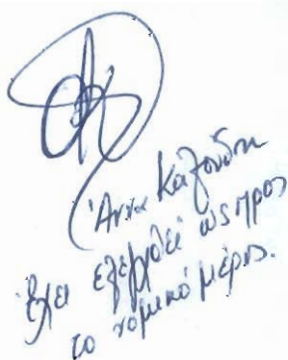 Άννα Καζούδη
Έχει ελεγχθεί ως προς
το νομικό μέρος.